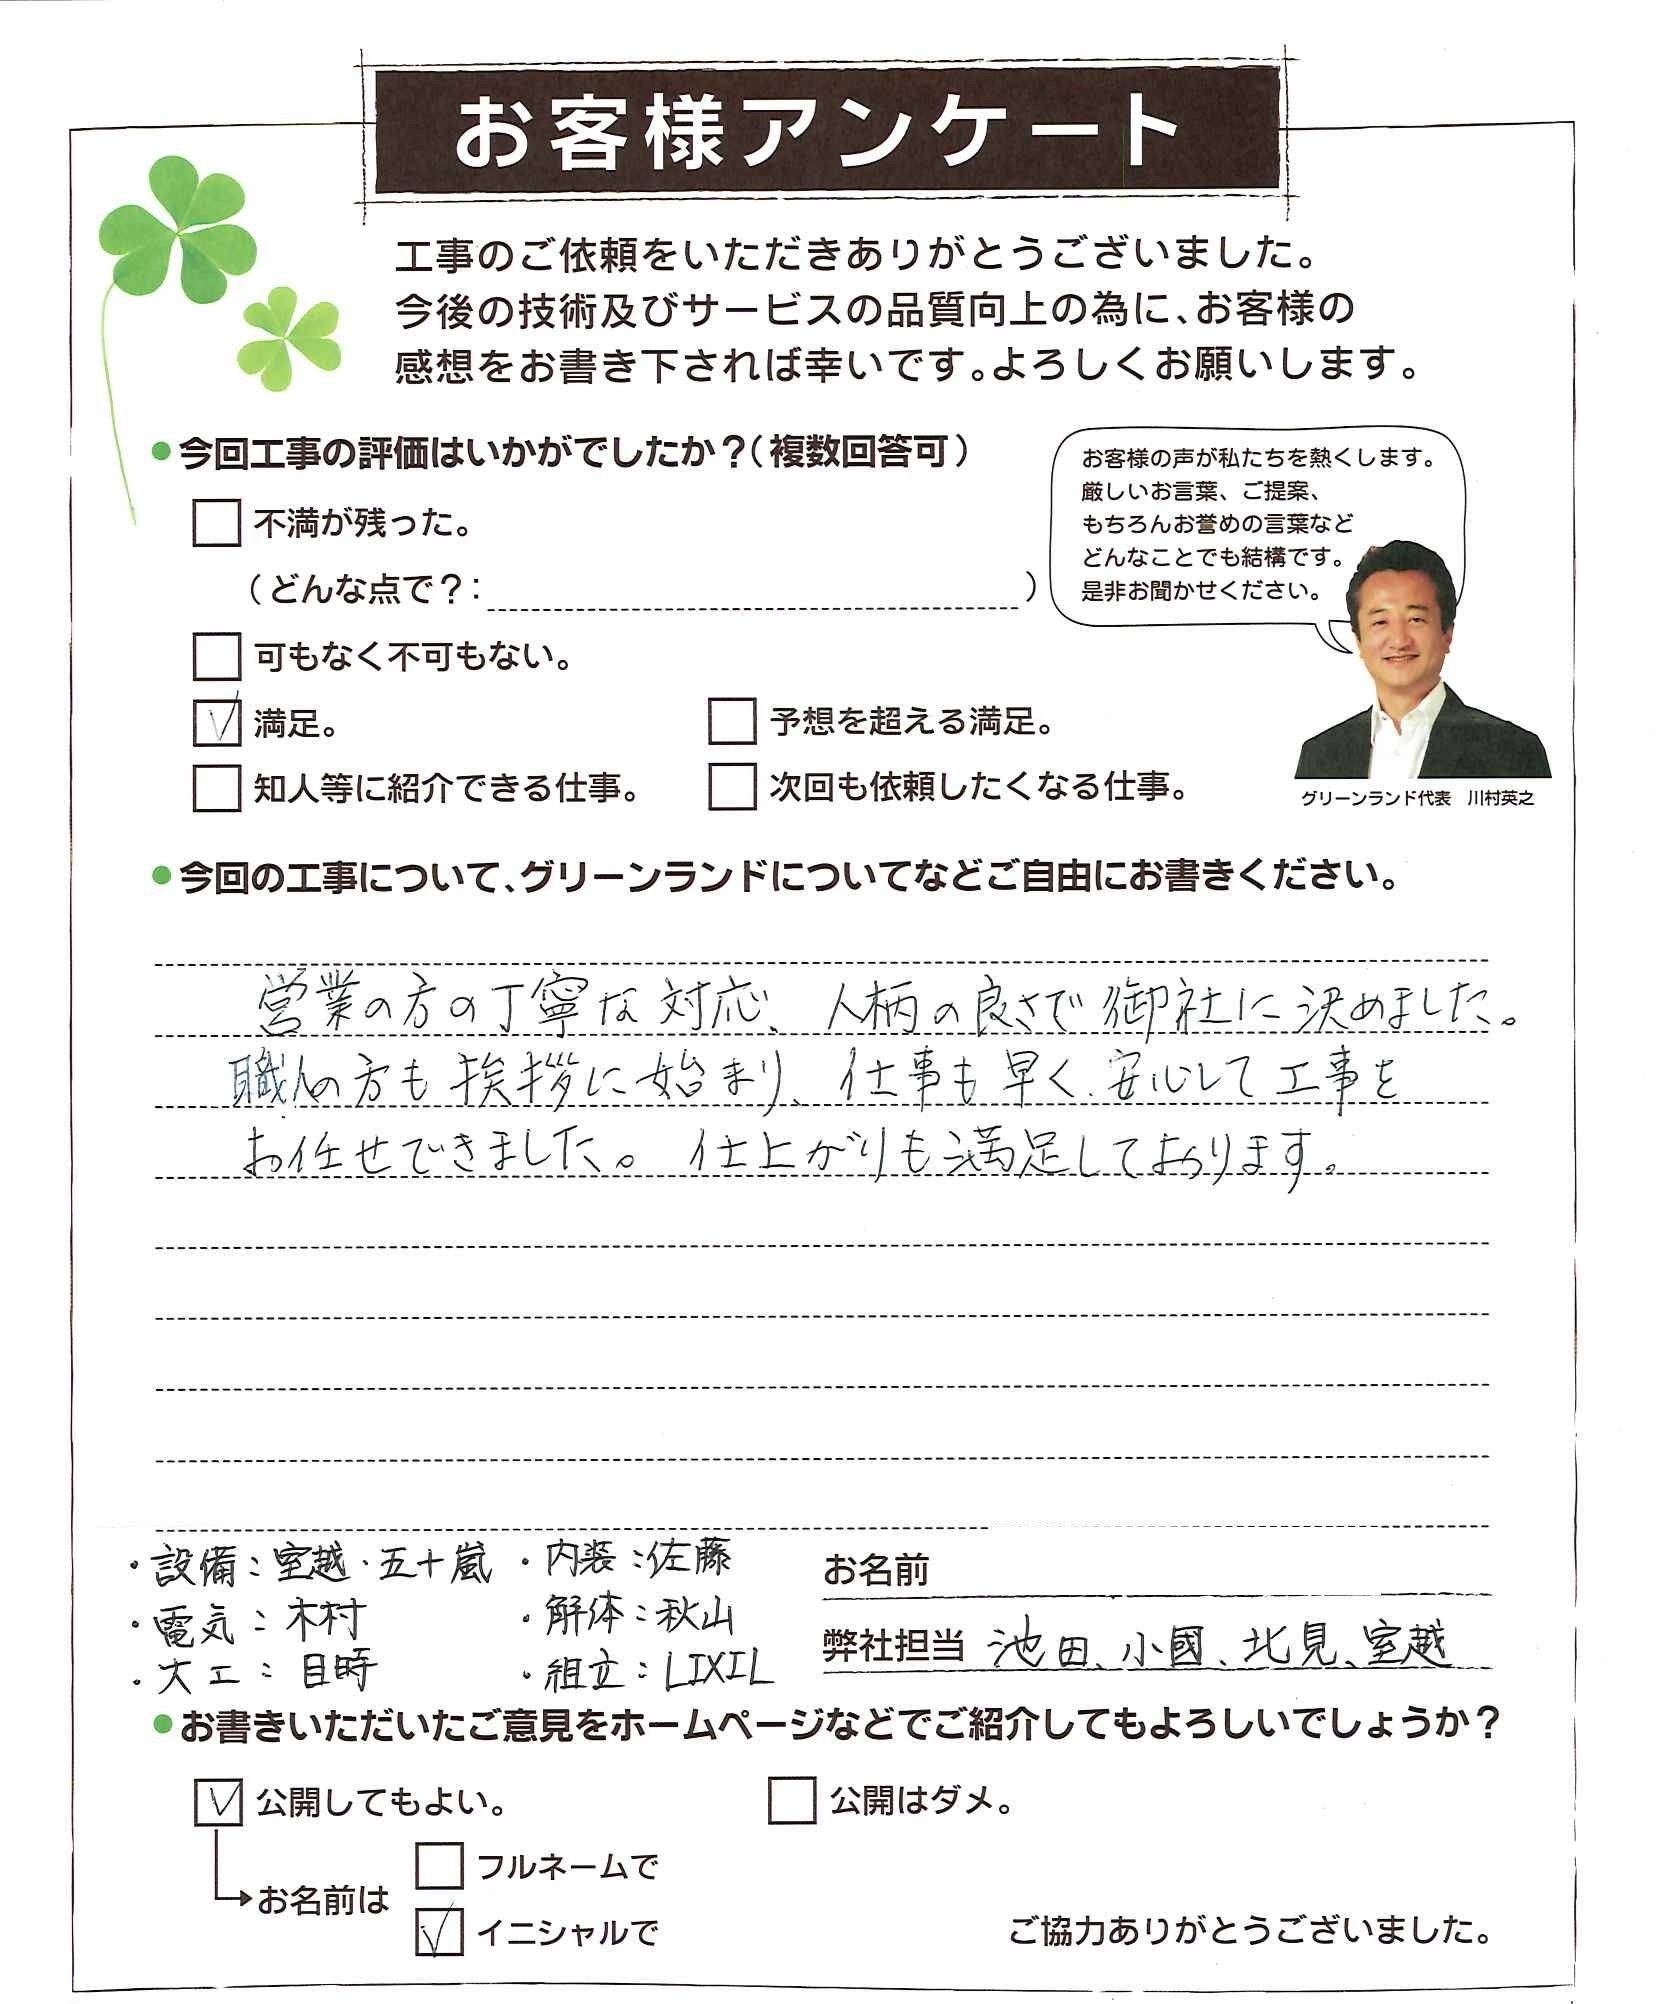 お客様アンケート
工事のご依頼をいただきありがとうございました。
今後の技術及びサービスの品質向上の為に、お客様の
感想をお書き下されば幸いです。よろしくお願いします。
●今回工事の評価はいかがでしたか？（複数回答可）
お客様の声が私たちを熱くします。
厳しいお言葉、ご提案、
もちろんお誉めの言葉など
どんなことでも結構です。
是非お聞かせください。
不満が残った。
（どんな点で？： ）
可もなく不可もない。
満足。 予想を超える満足。
知人等に紹介できる仕事。 次回も依頼したくなる仕事。
グリーンランド代表 川村英之
●今回の工事について、グリーンランドについてなどご自由にお書きください。
営業の方の丁寧な対応、人柄の良さで御社に決めました。
職人の方も挨拶に始まり、仕事も早く、安心して工事を
お任せできました。仕上がりも満足しております。
・設備：室越・五十嵐 ・内装：佐藤
・電気：木村 ・解体：秋山
・大工：目時 ・組立：LIXIL
お名前
弊社担当 池田、小國、北見、室越
●お書きいただいたご意見をホームページなどでご紹介してもよろしいでしょうか？
公開してもよい。 公開はダメ。
お名前は フルネームで
イニシャルで
ご協力ありがとうございました。